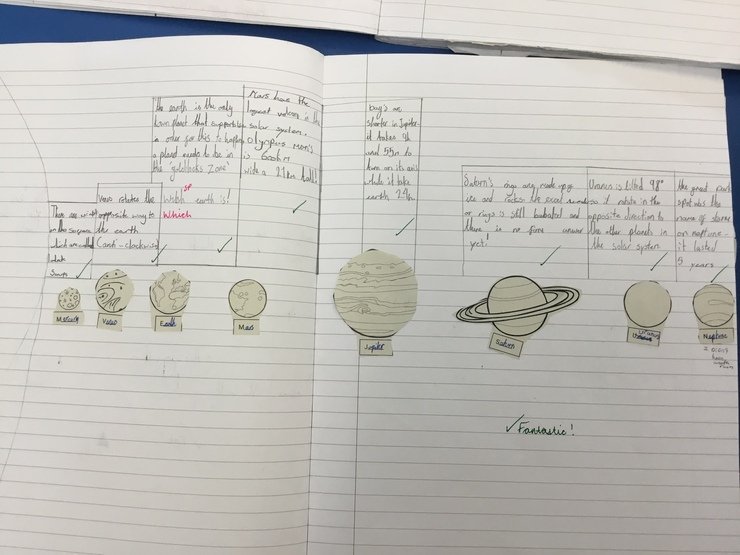 There are
which are called
Venus rotates the
opposite way to
the earth
(anti-clockwise)
the earth is the only
known planet that supports
in order for this to happen
a planet needs to be in
the 'goldilocks zone'
sp
which earth is!
Which
Mars have the
largest volcano in the
solar system.
Olympus Mon's
is 600km
with a 21km tall!
Day's are
shorter in Jupiter
it takes 9h
and 55m to
turn on its axis
while it take
earth 24hr.
Saturn's rings are made up of
ice and rocks. the exact
or rings is still
there is no firm answer
yet!
Uranus is tilted 98°
so it rotate in the
opposite direction to
the other planets in
the solar system.
the great dark
spot was the
name of storm
on neptune.
it lasted
5 years
Mercury
Venus
Earth
Mars
Jupiter
Saturn
Uranus
Neptune
✓ Fantastic!